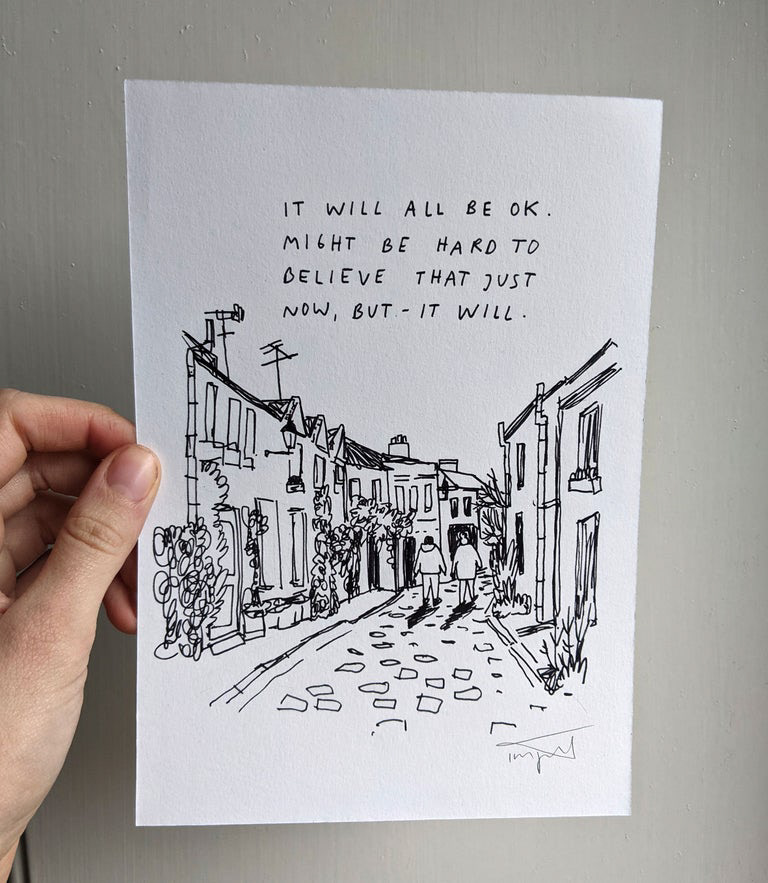 IT WILL ALL BE OK.
MIGHT BE HARD TO
BELIEVE THAT JUST
NOW, BUT - IT WILL.